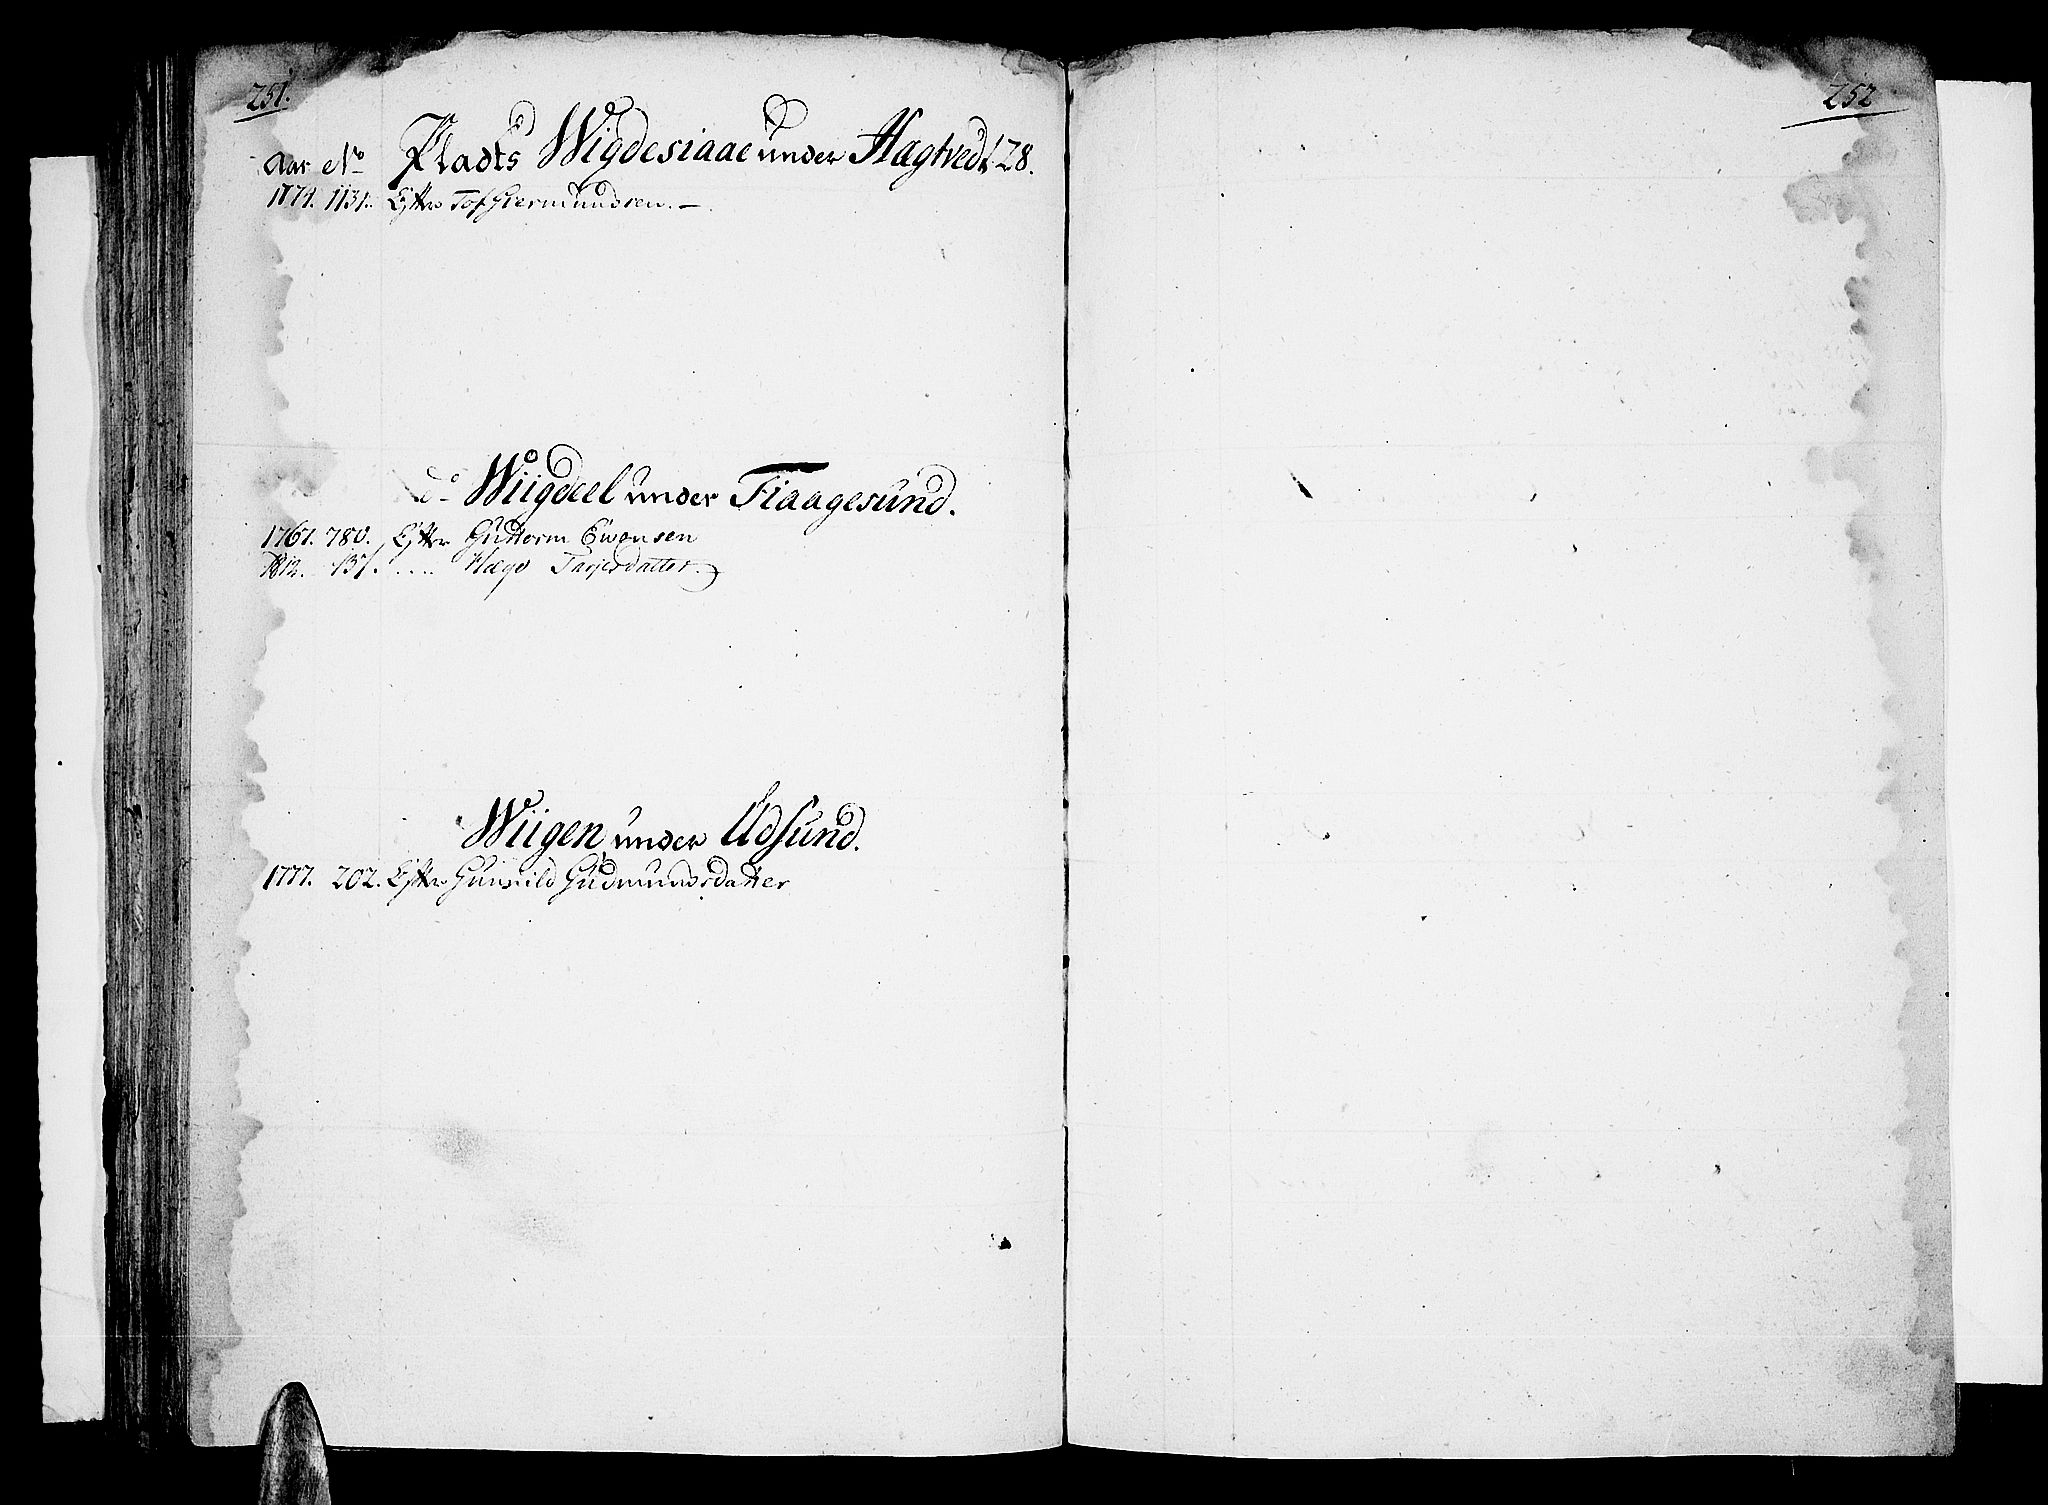 251.
Aar No Pladts Wigdesiaae under Hagtvedt 28.
1774. 1131. Efter Tof Giermundsen. —
do Wiigdeel under Fiaagesund.
1767. 780. Efter Guttorm Evensen
1812. 137. .... Hæge Tarjersdatter.
Wiigen under Udsund.
1777. 202. Efter Gunnild Gudmundsdatter
252